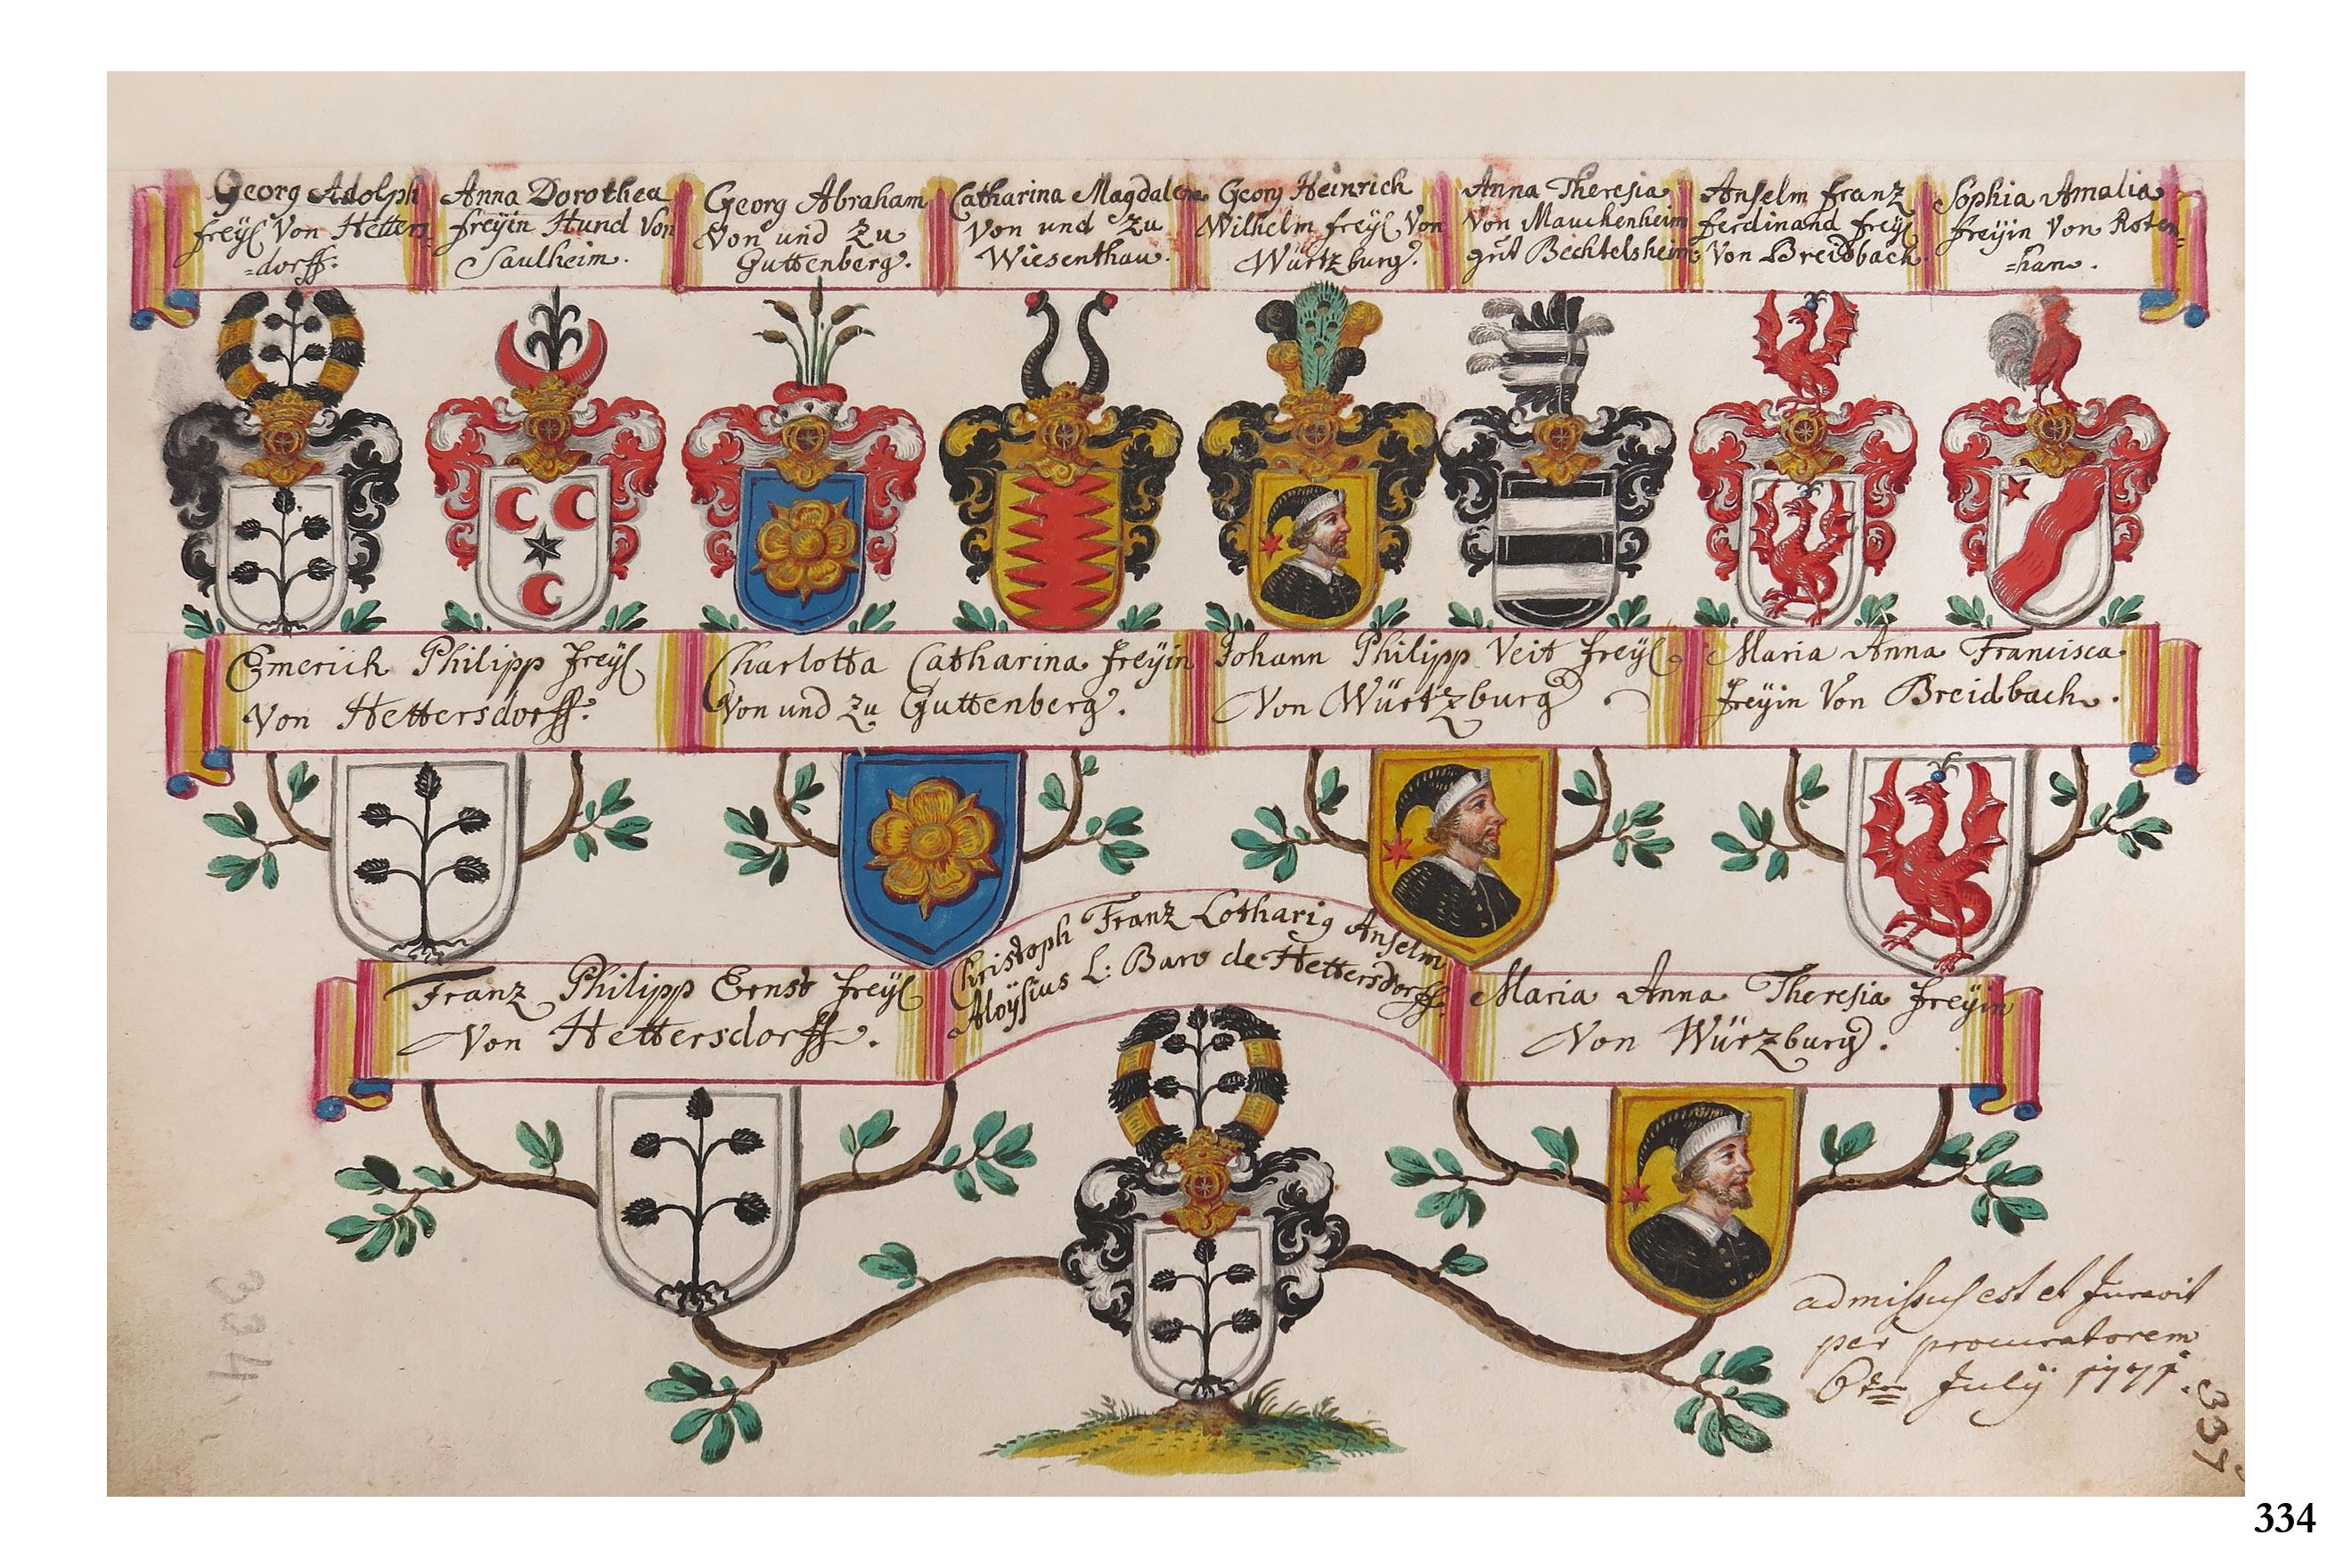 Georg Adolph
freÿl Von Hetters-
=dorff:
Anna Dorothea
freÿin Hund Von
Saulheim.
Georg Abraham
Von und Zu
Guttenberg.
Catharina Magdalena
Von und Zu
Wiesenthau.
Georg Heinrich
Wilhelm freÿl Von
Würtzburg.
Anna Theresia
Von Mauchenheim
gnt Bechtelsheim
Anselm franz
ferdinand freÿl
Von Breidbach
Sophia Amalia
freÿin Von Roten=
=han.
Emerich Philipp freÿl
Von Hettersdorff.
Charlotta Catharina freÿin
Von und Zu Guttenberg.
Johann Philipp Veit freÿl
Von Würtzburg.
Maria Anna Francisca
freÿin Von Breidbach.
Christoph Franz Lotharig Anselm
Aloÿsius L: Baro de Hettersdorff.
Franz Philipp Ernst freÿl
Von Hettersdorff.
Maria Anna Theresia freÿin
Von Würzburg.
admissus est et Juravit
per procuratorem
6ten Julÿ 1771.
334
337
334